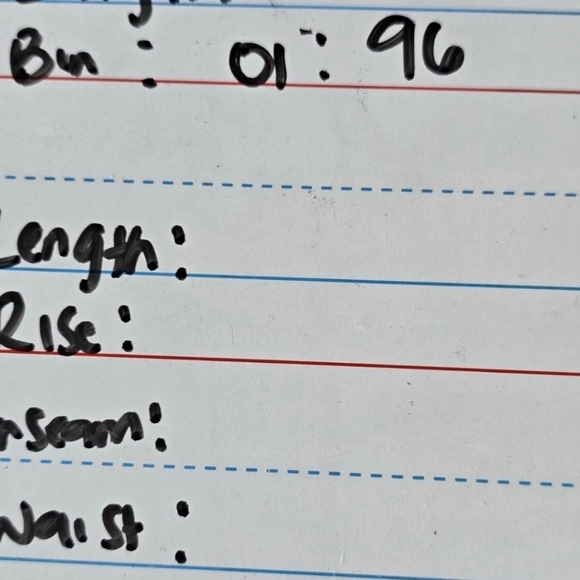 Bin : 01 : 96
Length:
Rise:
nseam:
Waist: